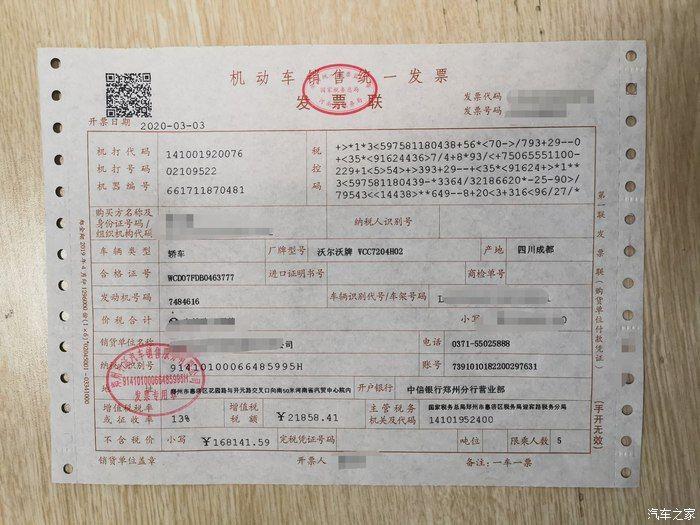 机动车销售统一发票
国家税务总局
发票联
发票代码
发票号码
开票日期 2020-03-03
机打代码 141001920076
机打号码 02109522
机器编号 661711870481
税控码
+>*1*3<597581180438+56*<70->/793+29--0
+<35*<91624436>7/4+8*93/<+75065551100-
229+1<5>54>+>393+29--+<35*<91624+>*1**
3<597581180439-*3364/32186620*-25-90>/
79543<<14438>**649--8+20<3+316<96/27/*
购买方名称及身份证号码/组织机构代码
纳税人识别号
车辆类型 轿车 厂牌型号 沃尔沃牌 VCC7204H02 产地 四川成都
合格证号 WCD07FDB0463777 进口证明书号 商检单号
发动机号码 7484616 车辆识别代号/车架号码 L
价税合计 小写
销货单位名称 公司 电话 0371-55025888
纳税人识别号 91410100066485995H 账号 7391010182200297631
地址 郑州市惠济区花园路与开元路交叉口向南50米河南省汽贸中心院内 开户银行 中信银行郑州分行营业部
增值税税率或征收率 13% 增值税税额 ￥21858.41 主管税务机关及代码 国家税务总局郑州市惠济区税务局迎宾路税务分局 14101952400
不含税价 小写 ￥168141.59 完税凭证号码 吨位 限乘人数 5
销货单位盖章 开票人 备注：一车一票
第一联 发票联（购货单位付款凭证）
（手开无效）
发票专用章
汽车之家